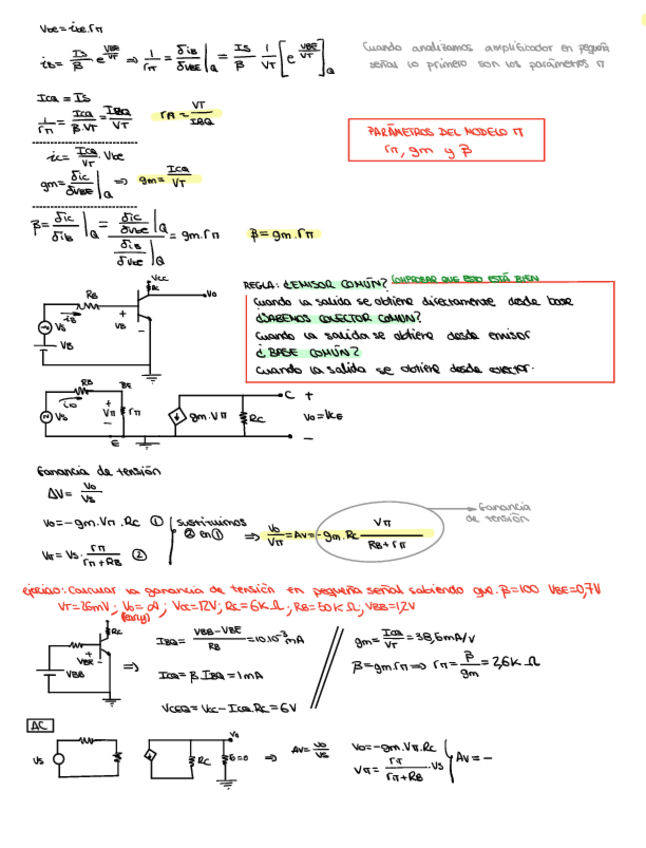 Vbe = ibe.rπ
iB = IS/β e^(VBE/VT) ⇒ 1/rπ = δiB/δVBE |Q = IS/β 1/VT [e^(VBE/VT)]Q
Cuando analizamos amplificador en pequeña
señal lo primero son los parámetros π
ICQ = IS
1/rπ = ICQ/β.VT = IBQ/VT
rπ = VT/IBQ
PARÁMETROS DEL MODELO π
rπ, gm y β
ic = ICQ/VT . Vbe
gm = δic/δVBE |Q ⇒ gm = ICQ/VT
β = δic/δiB |Q = (δic/δVbe |Q)/(δiB/δVbe |Q) = gm.rπ
β = gm.rπ
VCC
RC
Vo
RB
iB
VS
VB
+
VB
-
REGLA: ¿EMISOR COMÚN? COMPROBAR QUE ESTO ESTÁ BIEN
Cuando la salida se obtiene directamente desde base
¿SABEMOS COLECTOR COMÚN?
Cuando la salida se obtiene desde emisor
¿BASE COMÚN?
Cuando la salida se obtiene desde
RB
VS
+
Vπ
-
rπ
E
gm.Vπ
RC
C +
Vo = VCE
-
Ganancia de tensión
ΔV = Vo/VS
Vo = -gm.Vπ.RC ①
Vπ = VS. rπ/(rπ+RB) ②
sustituimos
② en ①
⇒ Vo/Vπ = AV = -gm.RC Vπ/(RB+rπ)
Ganancia
de tensión
ejercicio: Calcular la ganancia de tensión en pequeña señal sabiendo que: β=100 VBE=0,7V
VT=26mV; Vo=∞; VCC=12V; RC=6KΩ; RB=50KΩ; VBB=1,2V
(Early)
RC
+
VBE
-
VBB
⇒
IBQ = (VBB-VBE)/RB = 10.10⁻³ mA
ICQ = β.IBQ = 1mA
VCEQ = VCC - ICQ.RC = 6V
gm = ICQ/VT = 38,5mA/V
β=gm.rπ ⇒ rπ = β/gm = 2,6K Ω
AC
VS
RC
Vo
⇒ AV = Vo/VS
Vo = -gm.Vπ.RC
Vπ = rπ/(rπ+RB) .VS
AV = -